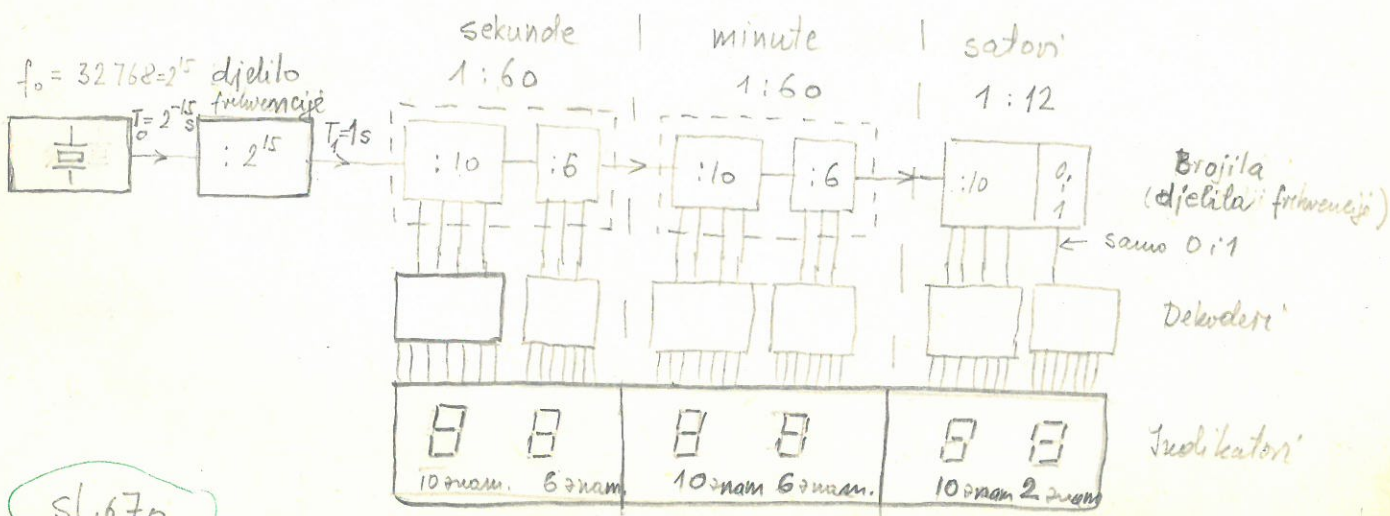 sekunde | minute | satovi
f₀ = 32768=2¹⁵ djelilo frekvencije
1:60 1:60 1:12
T₀=2⁻¹⁵ s
:2¹⁵
T₁=1s
:10 :6 :10 :6 :10 0, i 1
Brojila
(djelila frekvencije)
← samo 0 i 1
Dekoderi
Indikatori
10 znam. 6 znam. 10 znam 6 znam. 10 znam 2 znam
sl.67a